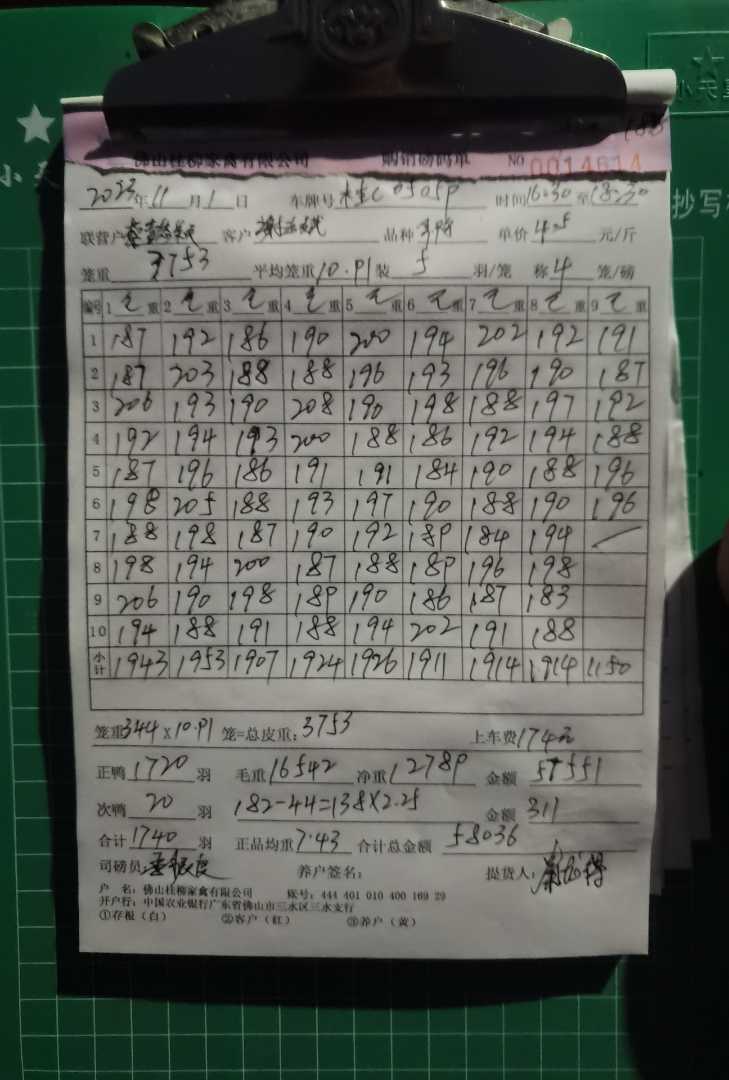 188
佛山桂柳家禽有限公司 购销磅码单 NO 0014614
2023年11月1日 车牌号 桂C0505P 时间16:30至18:30
联营户 客户 品种 单价 4.5 元/斤
笼重 3753 平均笼重10.91装 5 羽/笼 称4 笼/磅
编号 1 毛重 2 毛重 3 毛重 4 毛重 5 毛重 6 毛重 7 毛重 8 毛重 9 毛重
1 187 192 186 190 200 194 202 192 191
2 187 203 188 188 196 193 196 190 187
3 206 193 190 208 190 198 188 197 192
4 192 194 193 200 188 186 192 194 188
5 187 196 186 191 191 184 190 188 196
6 198 205 188 193 197 190 188 190 196
7 188 198 187 190 192 189 184 194
8 198 194 200 187 188 189 196 198
9 206 190 198 189 190 186 187 183
10 194 188 191 188 194 202 191 188
小计 1943 1953 1907 1924 1926 1911 1914 1914 1150
笼重344×10.91笼=总皮重:3753 上车费174元
正鸭1720羽 毛重16542 净重12789 金额 57551
次鸭 20 羽 182-44=138×2.25 金额 311
合计1740羽 正品均重7.43 合计总金额 58036
司磅员: 养户签名: 提货人:
户 名:佛山桂柳家禽有限公司 账号:444 401 010 400 169 29
开户行:中国农业银行广东省佛山市三水区三水支行
①存根(白) ②客户(红) ③养户(黄)
小天
抄写